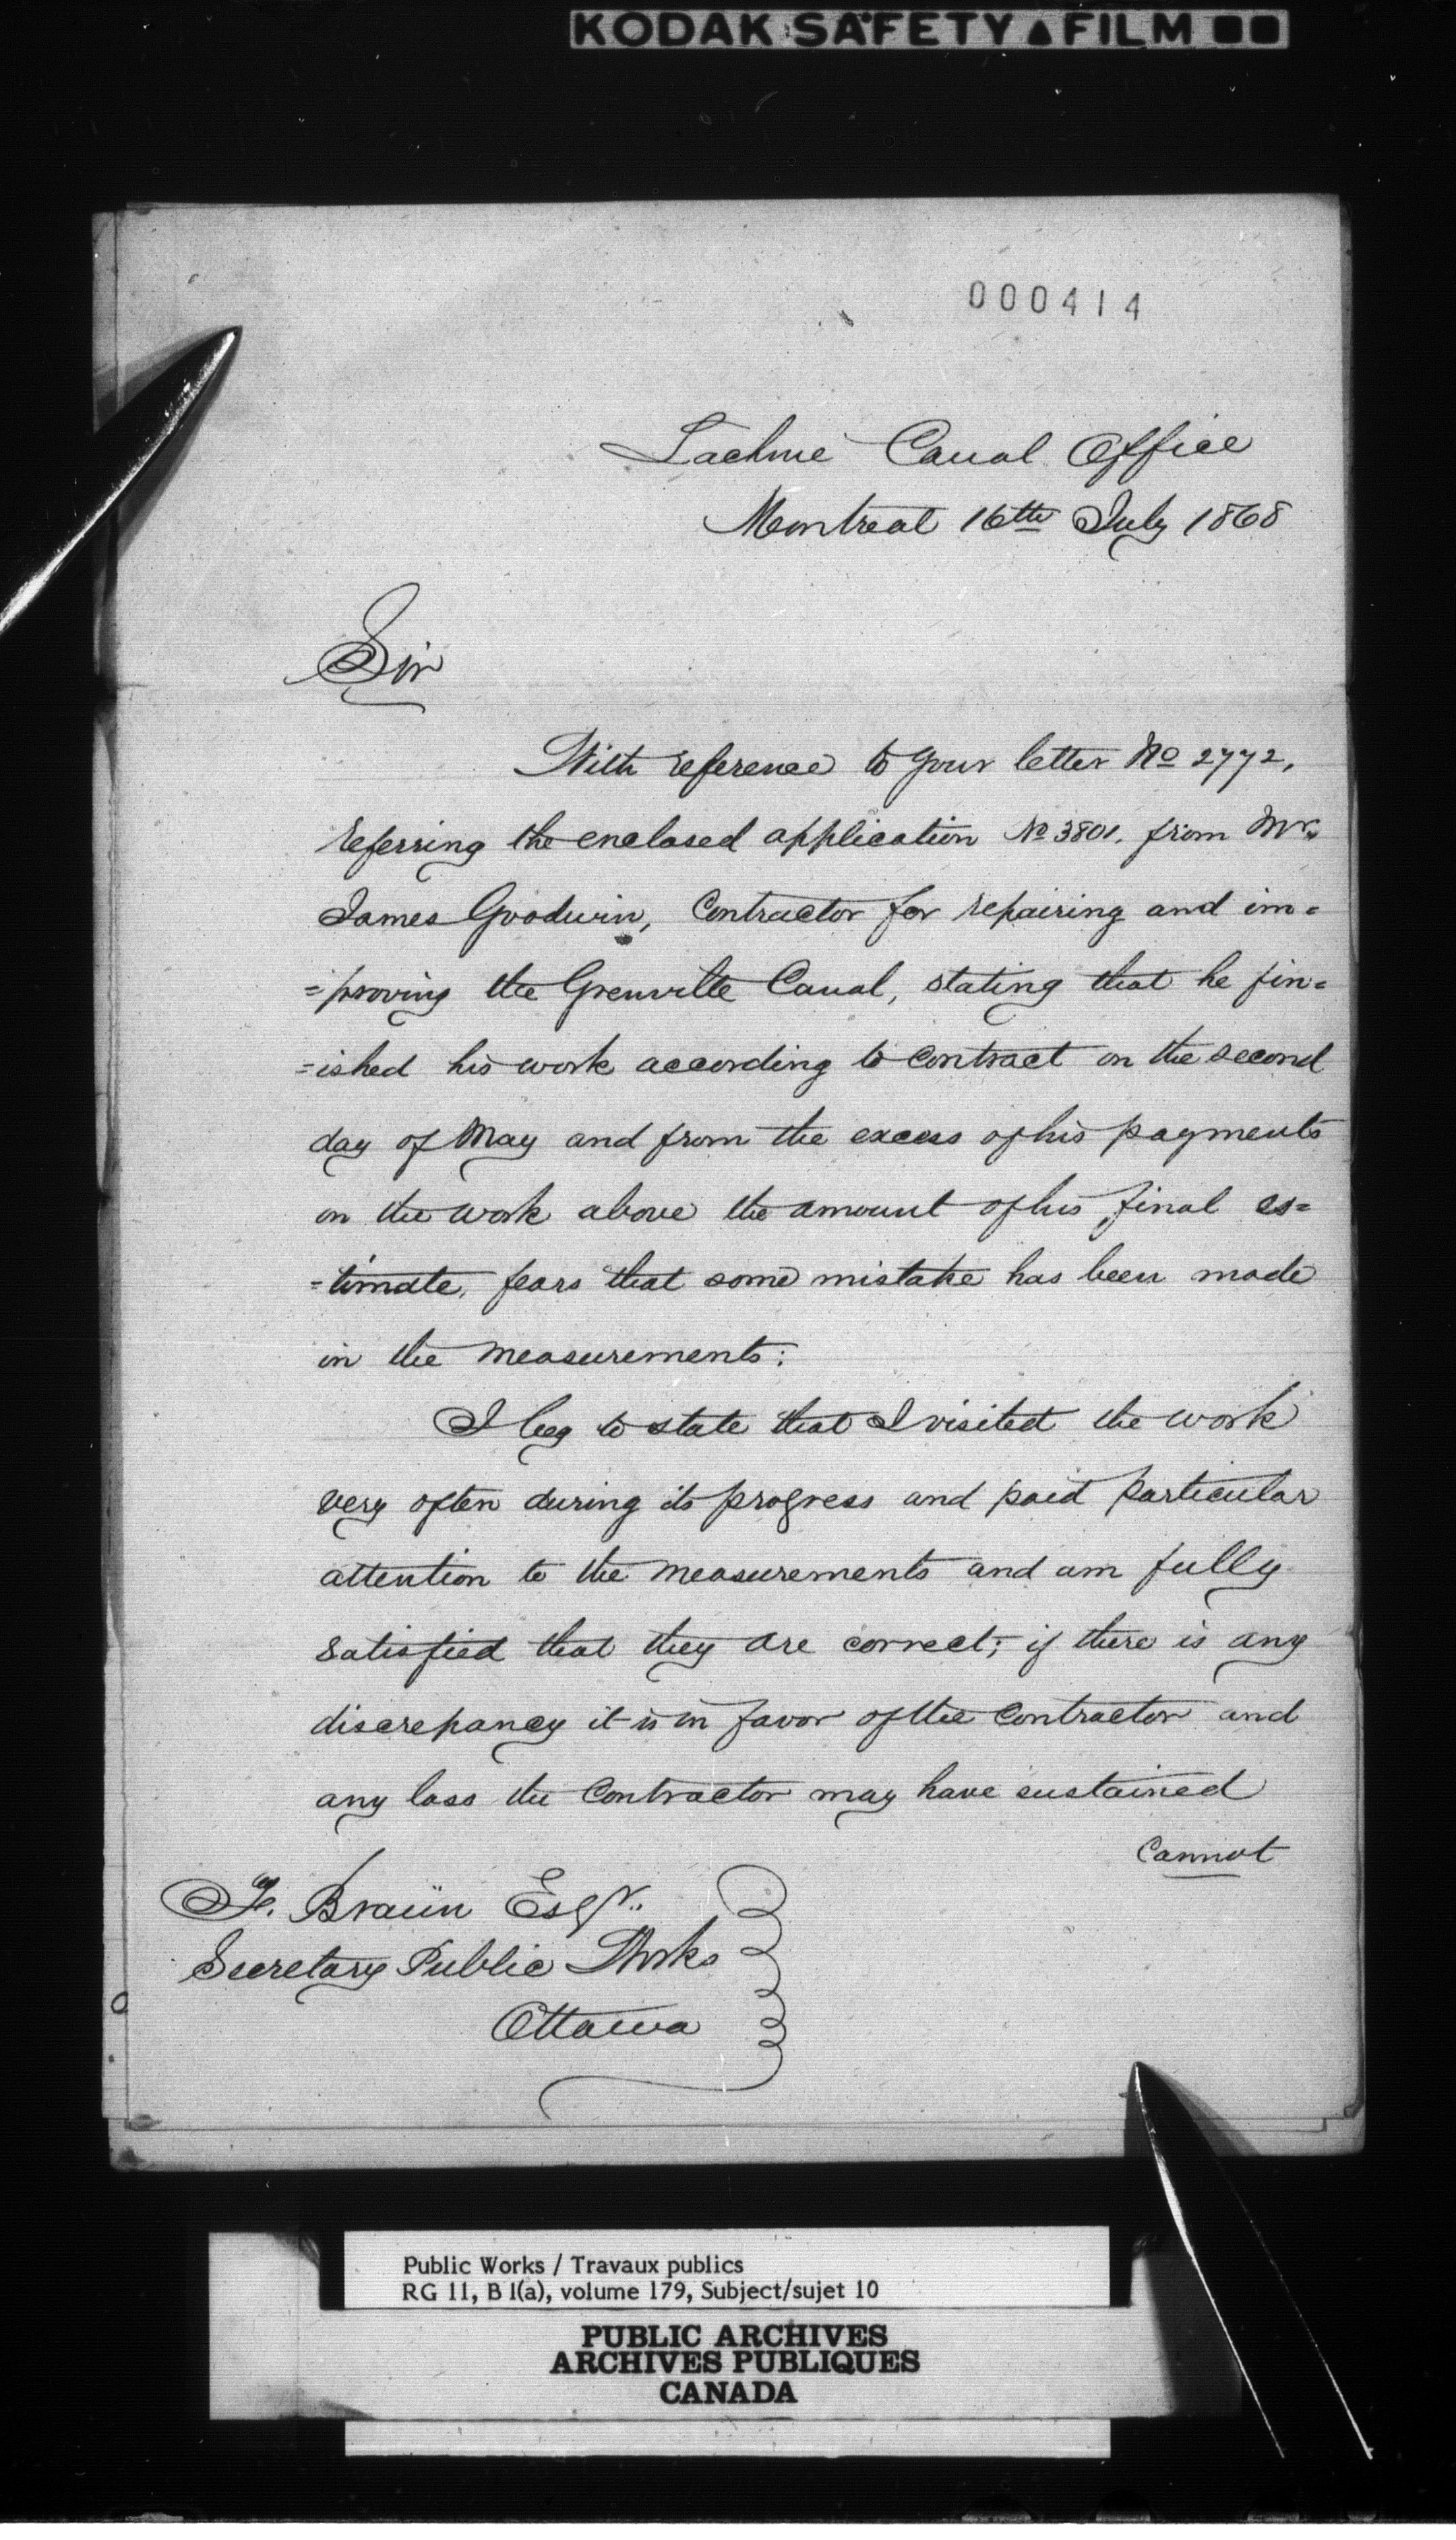 KODAK SAFETY FILM
000414
Lachine Canal Office
Montreal 16th July 1868
Sir
With reference to your letter No 2772,
referring the enclosed application No 3801. from Mr.
James Goodwin, Contractor for repairing and im=
=proving the Grenville Canal, stating that he fin=
=ished his work according to contract on the second
day of May and from the excess of his payments
on the work above the amount of his final es=
=timate, fears that some mistake has been made
in the measurements:
I beg to state that I visited the work
very often during its progress and paid particular
attention to the measurements and am fully
satisfied that they are correct; if there is any
discrepancy it is in favor of the Contractor and
any loss the Contractor may have sustained
Cannot
F. Braün Esqr.
Secretary Public Works
Ottawa
Public Works / Travaux publics
RG 11, B 1(a), volume 179, Subject/sujet 10
PUBLIC ARCHIVES
ARCHIVES PUBLIQUES
CANADA